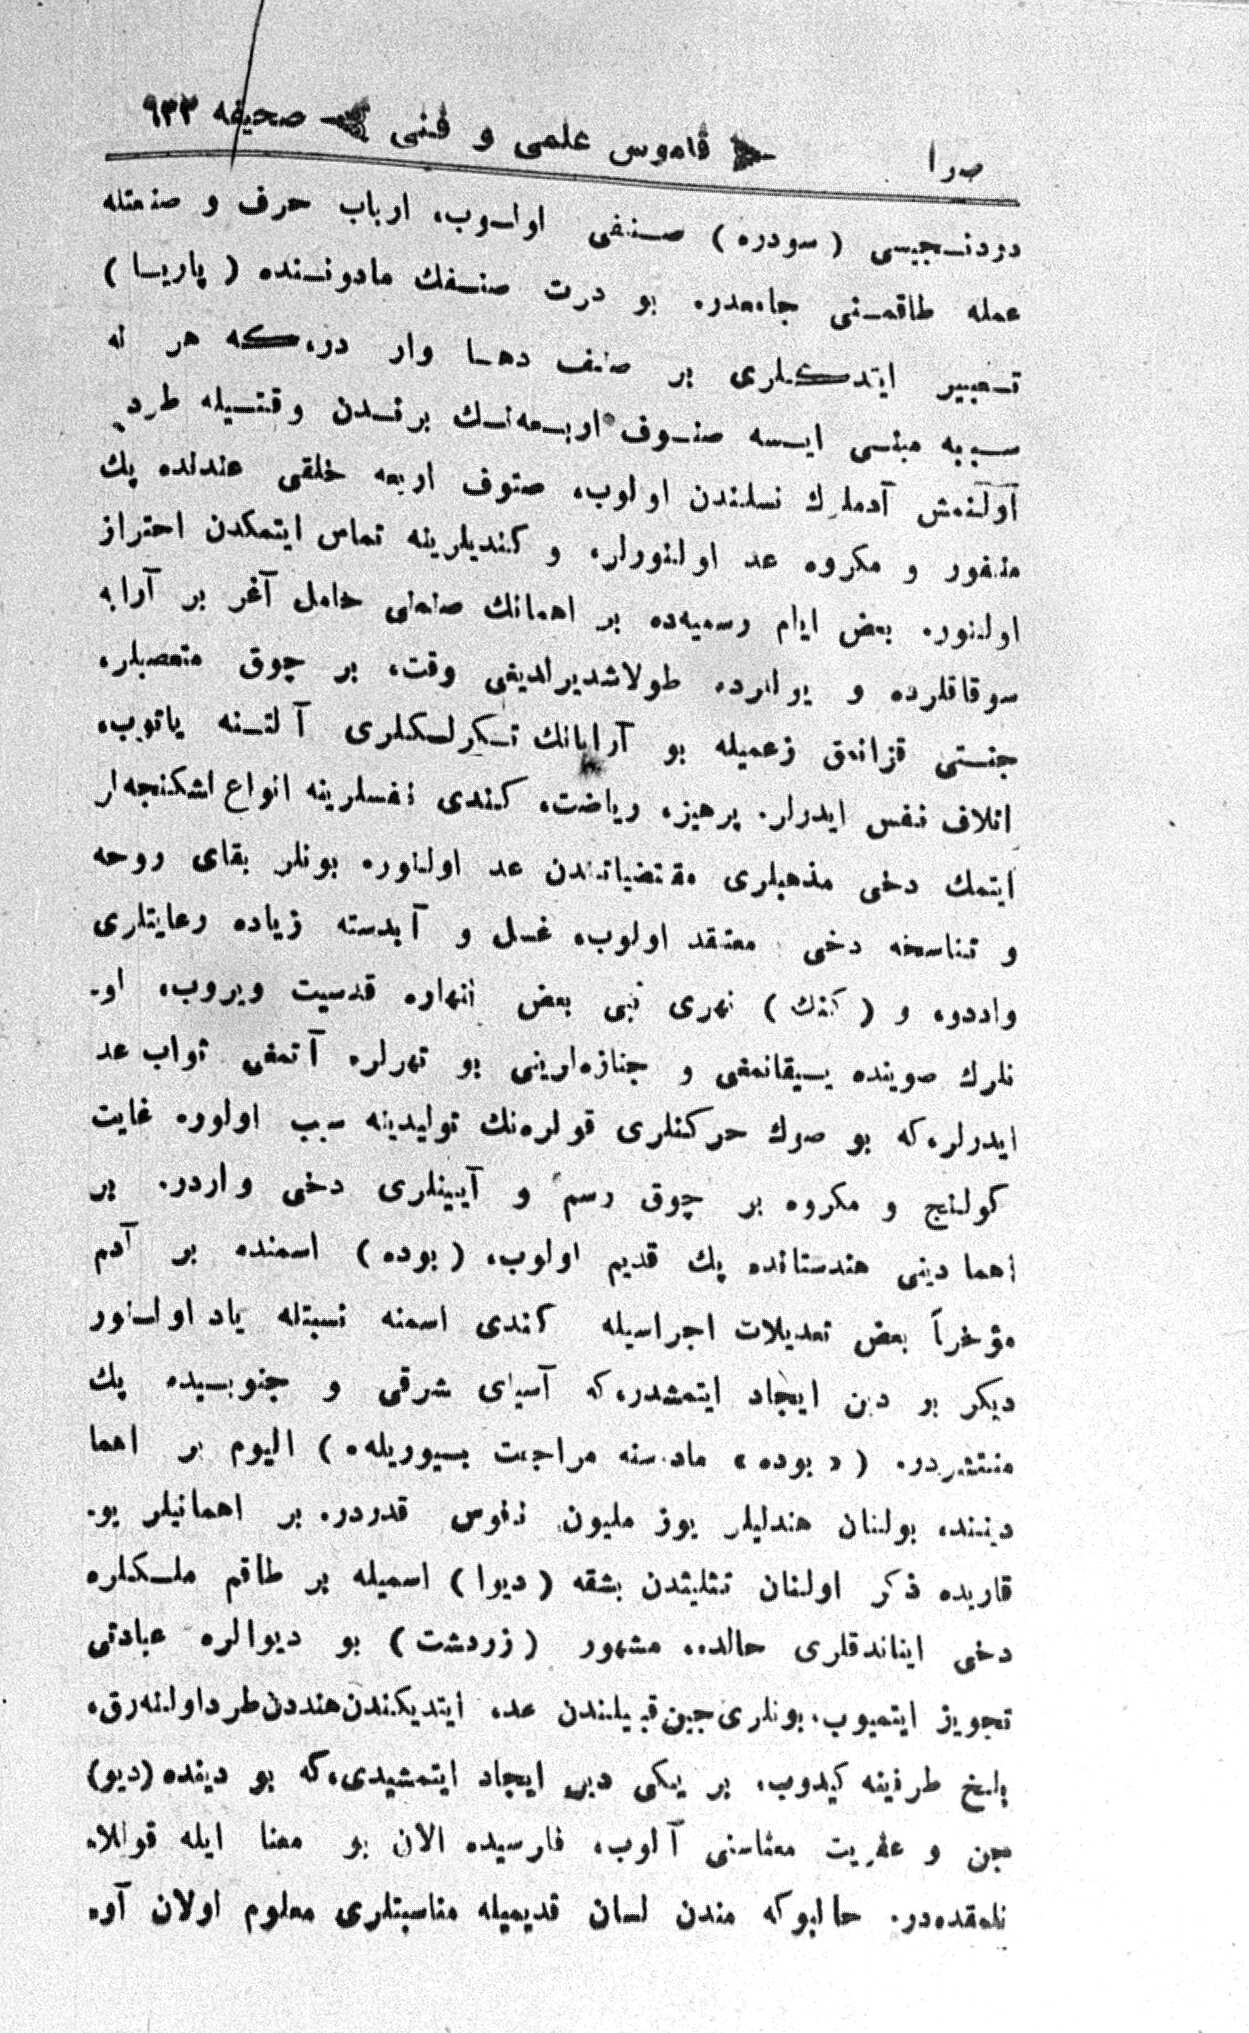 برا قاموس علمی و فنی صحیفه ٩٣٣
دردنـجیسی (سودره) صـنفی اولـوب، ارباب حرف و صنعتله
عمله طاقمـنی جامعدر. بو درت صنـفك مادونـنده (پاریـا)
تـعبیر ایتدكلری بر صنف دهـا وار در،كه هر نه
سـببه مبنـی ایـسه صنـوف اربـعه‌نـك برنـدن وقتـیله طرد
اولنمش آدملرك نسلندن اولوب، صنوف اربعه خلقی عندنده پك
منفور و مكروه عد اولنورلر، و كندیلرینه تماس ایتمكدن احتراز
اولنور. بعض ایام رسمیه‌ده بر اهمانك صنمنی حامل آغر بر آرابه
سوقاقلرده و یوللرده طولاشدیرلدیغی وقت، بر چوق متعصبلر،
جنـتی قزانمق زعمیله بو آرابانك تـكرلـكلری آلتـنه یاتوب،
اتلاف نفس ایدرلر. پرهیز، ریاضت، كندی نفسلرینه انواع اشكنجه‌لر
ایتمك دخی مذهبلری مقتضیاتندن عد اولنور. بونلر بقای روحه
و تناسخه دخی معتقد اولوب، غسل و آبدسته زیاده رعایتلری
واردر، و (كنك) نهری كبی بعض انهاره قدسیت ویروب، او-
نلرك صوینده ییقانمغی و جنازه‌لرینی بو نهرلره آتمغی ثواب عد
ایدرلر،كه بو صوك حركتلری قولره‌نك تولیدینه سبب اولور. غایت
كولنج و مكروه بر چوق رسم و آیینلری دخی واردر. بر
اهما دینی هندستانده پك قدیم اولوب، (بوده) اسمنده بر آدم
مؤخراً بعض تعدیلات اجراسیله كندی اسمنه نسبتله یاد اولـنور
دیكر بر دین ایجاد ایتمشدر،كه آسیای شرقی و جنوبـیده پك
منتشردر. («بوده» ماده‌سنه مراجعت بـیوریله.) الیوم بر اهما
دیننده بولنان هندلیلر یوز ملیون نفوس قدردر. بر اهمانیلر یو-
قاریده ذكر اولنان تثلیثدن بشقه (دیوا) اسمیله بر طاقم ملـكلره
دخی ایناندقلری حالده، مشهور (زردشت) بو دیوالره عبادتی
تجویز ایتمیوب، بونلری جین قبیلندن عد، ایتدیكندن هنددن طرد اولنه‌رق،
بلخ طرفینه كیدوب، بر یـكی دین ایجاد ایتمشیدی،كه بو دینده (دیو)
جن و عفریت معناسنی آلوب، فارسیده الان بو معنا ایله قوللا-
نلمقده‌در. حالبوكه هندن لسان قدیمیله مناسبتلری معلوم اولان آو-